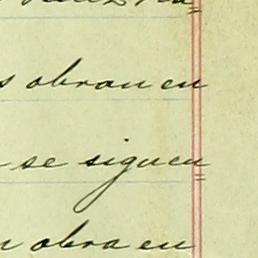 s obran en
se siguen
n obra en